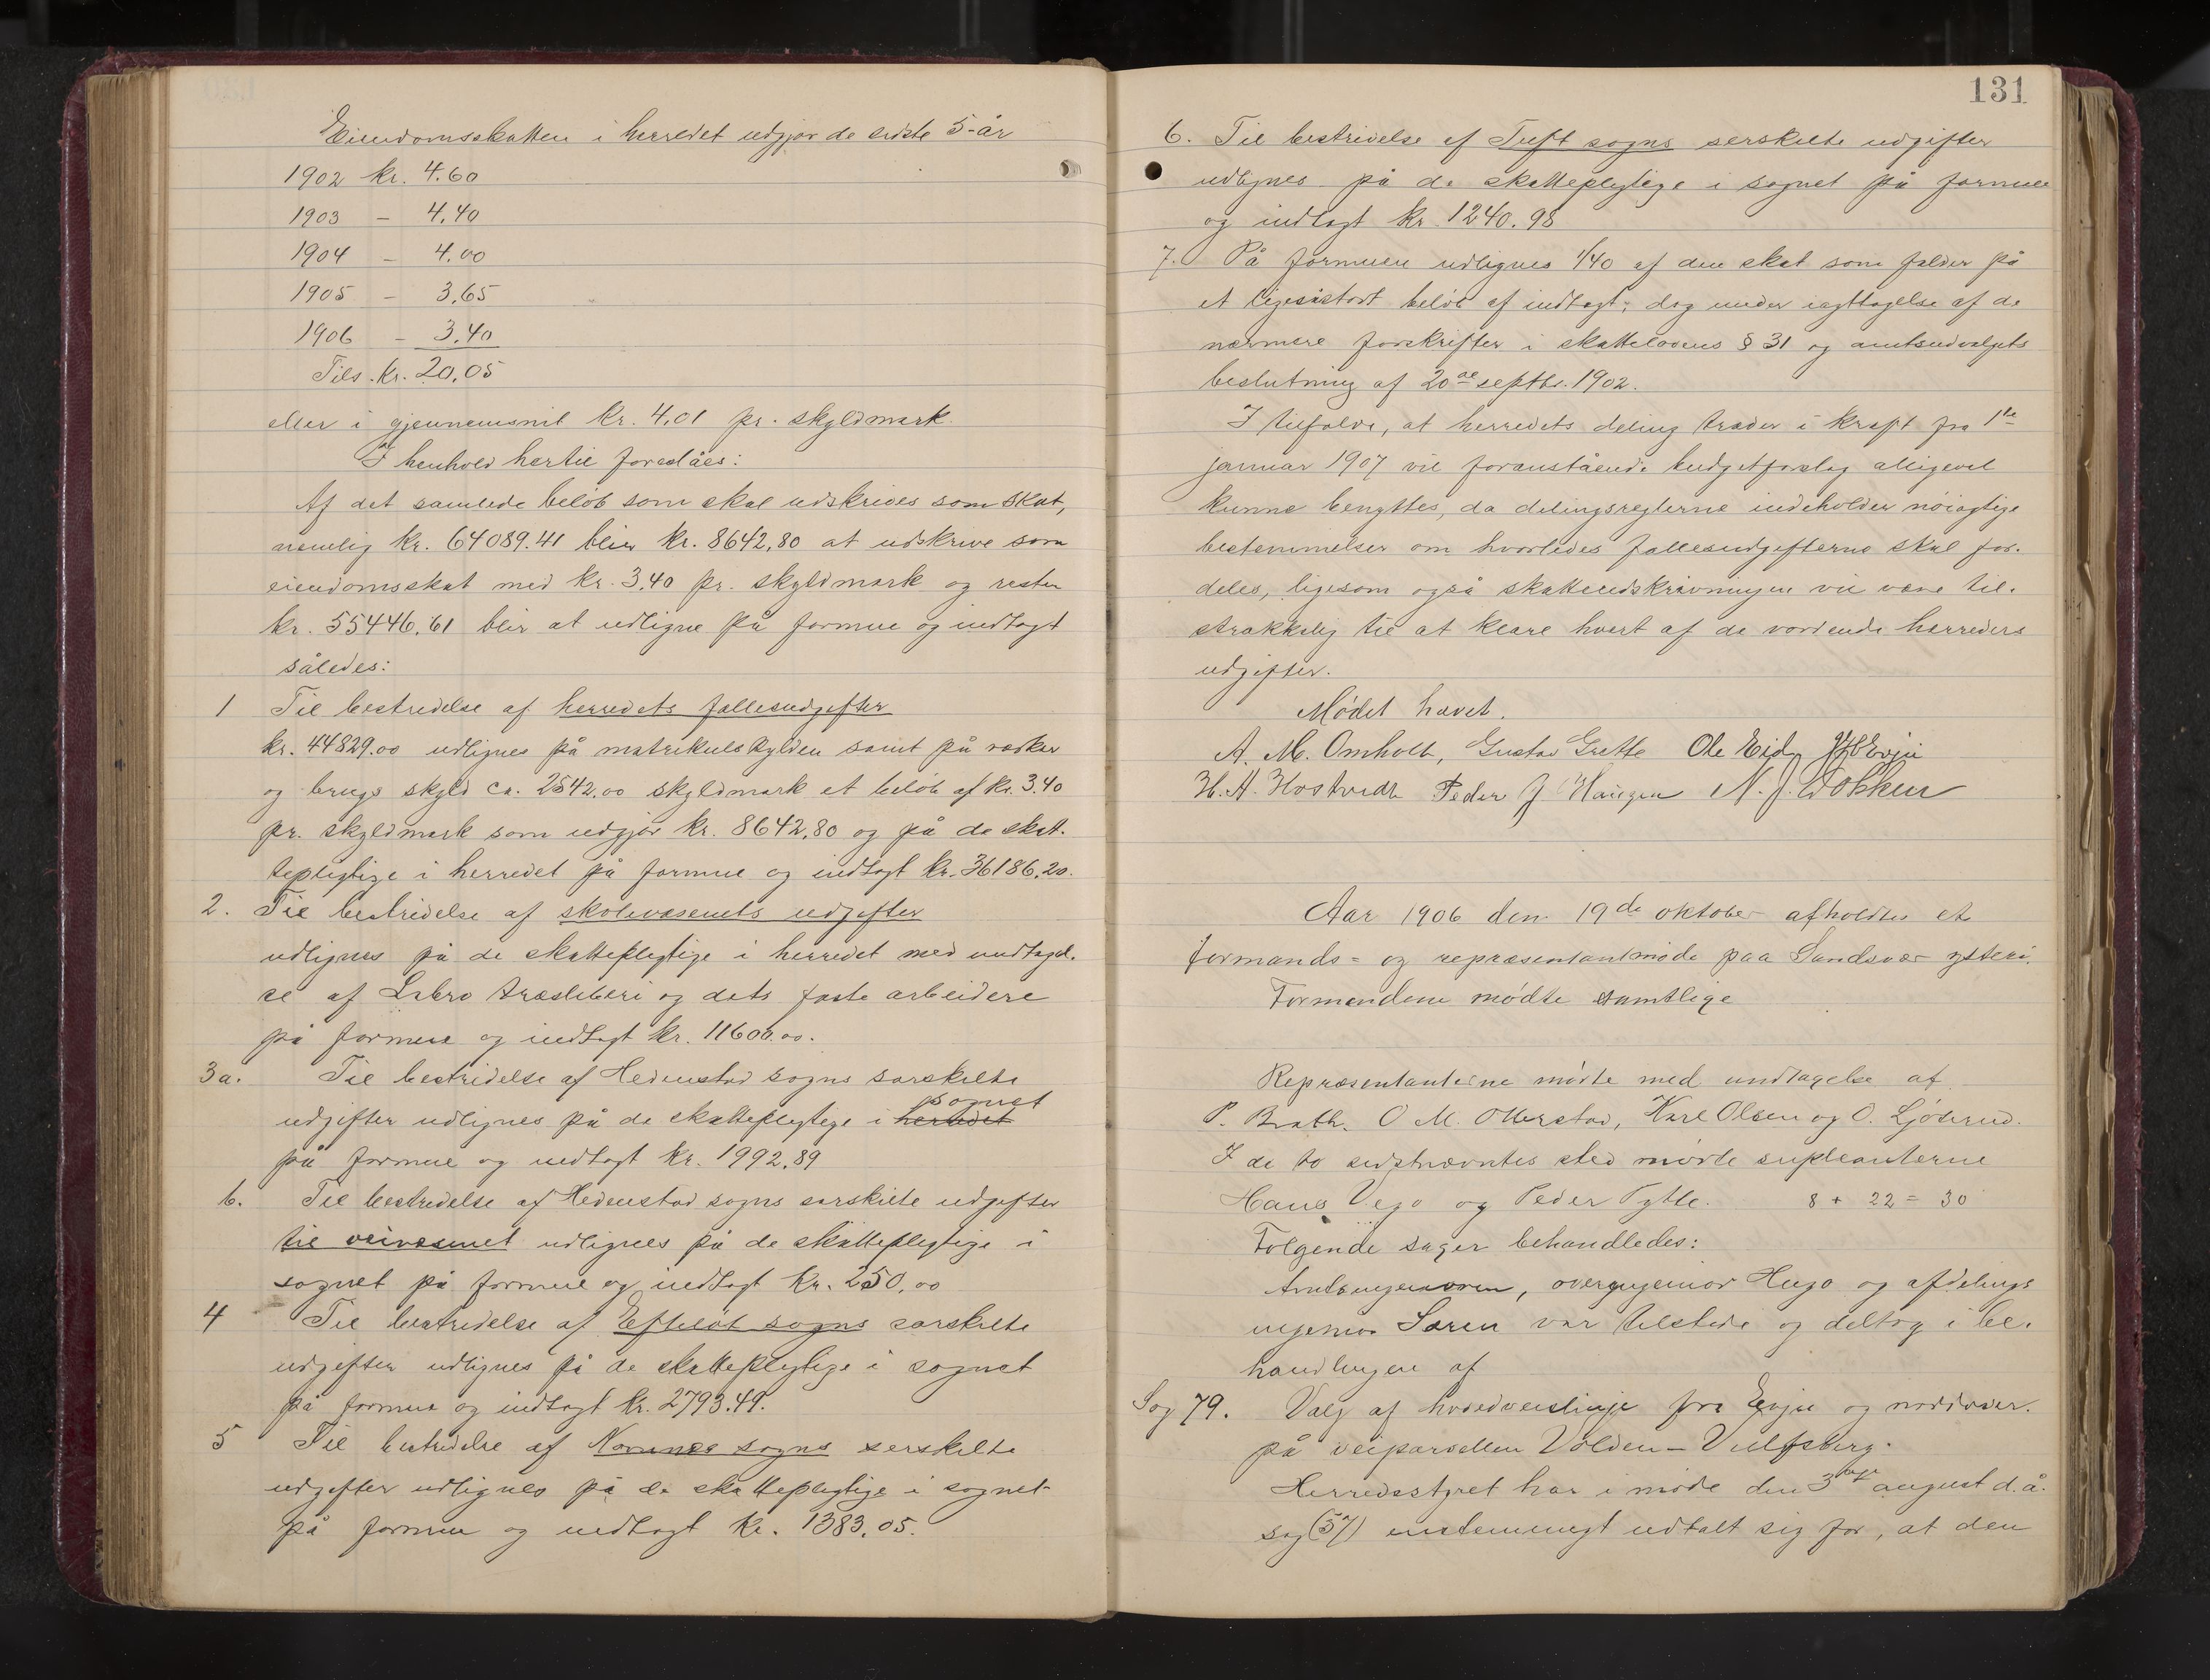 Eiendomsskatten i herredet udgjør de sidste 5-år
1902 kr. 4.60
1903 - 4,40
1904 - 4.00
1905 - 3,65
1906 - 3,40
Tils. kr. 20,05
eller i gjennemsnit kr. 4,01 pr. skyldmark.
I henhold hertil foreslåes:
Af det samlede beløb som skal udskrives som skat,
nemlig kr. 64089.41 blir kr. 8642,80 at udskrive som
eiendomsskat med kr. 3,40 pr. skyldmark og resten
kr. 55446,61 blir at udligne på formue og indtægt
således:
1 Til bestridelse af herredets fællesudgifter
kr. 44829.00 udlignes på matrikulskylden samt på værker
og brugs skyld ca. 2542,00 skyldmark et beløb af kr. 3.40
pr. skyldmark som udgjør kr. 8642,80 og på de skat-
tepligtige i herredet på formue og indtægt kr. 36186,20.
2. Til bestridelse af skolevæsenets udgifter
udlignes på de skattepligtige i herredet med undtagel-
se af Labro træsliberi og dets faste arbeidere
på formue og indtægt kr. 11600.00.
3a. Til bestridelse af Hedenstad sogns særskilte
sognet
udgifter udlignes på de skattepligtige i herredet
på formue og indtægt kr. 1992,89
b. Til bestridelse af Hedenstad sogns særskilte udgifter
til veivæsenet udlignes på de skattepligtige i
sognet på formue og indtægt kr. 250,00
4 Til bestridelse af Efteløt sogns særskilte
udgifter udlignes på de skattepligtige i sognet
på formue og indtægt kr. 2793.49.
5 Til bestridelse af Komnes sogns serskilte
udgifter udlignes på de skattepligtige i sognet
på formue og indtægt kr. 1383,05.
131
6. Til bestridelse af Tuft sogns serskilte udgifter
udlignes på de skattepligtige i sognet på formue
og indtægt kr. 1240.98
7. På formuen udlignes 1/40 af den skat som falder på
et ligesåstort beløb af indtægt; dog under iagttagelse af de
nærmere forskrifter i skattelovens § 31 og amtsudvalgets
beslutning af 20de septbr. 1902.
I tilfælde, at herredets deling træder i kraft fra 1ste
januar 1907 vil foranstående budgetforslag alligevel
kunne benyttes, da delingsreglerne indeholder nøiagtige
bestemmelser om hvorledes fællesudgifterne skal for-
deles, ligesom også skatteudskrivningen vil være til-
strækkelig til at klare hvert af de vordende herreders
udgifter.
Mødet hævet.
A. M. Omholt, Gustav Grette Ole Eidg
H. A. Hostvedt Peder J. N. J. Dokken
Aar 1906 den 19de oktober afholdtes et
formands= og repræsentantmøde paa Sandsvær ysteri.
Formændene mødte samtlige
Repræsentanterne mødte med undtagelse af
P. Bratb. O M. Otterstad, Karl Olsen og O. Ljøterud.
I de to sidstnævntes sted mødte supleanterne
Hans Vego og Peder Tytte. 8 + 22 = 30
Følgende sager behandledes:
Amtsingeniøren, overingeniør Hugo og afdelings
ingeniør Saxen var tilstede og deltog i be-
handlingen af
Sag 79. Valg af hovedveislinje fra Evju og nordover.
på veiparsellen Volden - Vulfsberg.
Herredsstyret har i møde den 3die august d.å.
sag (57) enstemmigt udtalt sig for, at den